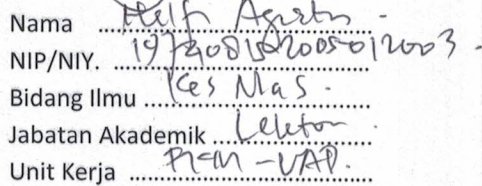 Nama Helfi Agustin -
NIP/NIY. 197408152005012003 -
Bidang Ilmu Kes Mas.
Jabatan Akademik Lektor
Unit Kerja FKM - UAD.